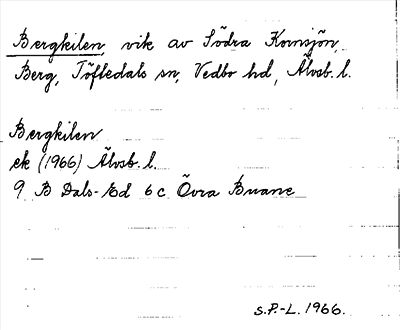 Bergkilen, vik av Södra Kornsjön,
Berg, Töftedals sn, Vedbo hd, Älvsb. l.
Bergkilen
ek (1966) Älvsb. l.
9 B Dals-Ed 6 c Övra Buane
S.P.-L. 1966.